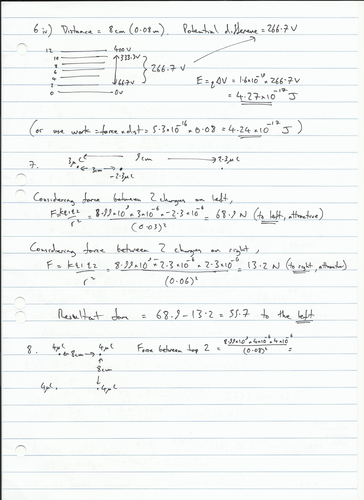 6 iv) Distance = 8cm (0.08m). Potential difference = 266.7V
12 400V
10 333.3V
8
6 266.7 V
4
2 66.7V
0 0V
E = qΔV = 1.6×10⁻¹⁹ × 266.7V
= 4.27×10⁻¹⁷ J
(or use work = force × dist = 5.3×10⁻¹⁶ × 0.08 = 4.24×10⁻¹⁷ J)
7. 9cm
3μC 3cm 2.3μC
-2.3μC
Considering force between 2 charges on left,
F = kq₁q₂ / r² = 8.99×10⁹ × 3×10⁻⁶ × -2.3×10⁻⁶ / (0.03)² = 68.9 N (to left, attractive)
Considering force between 2 charges on right,
F = kq₁q₂ / r² = 8.99×10⁹ × -2.3×10⁻⁶ × 2.3×10⁻⁶ / (0.06)² = 13.2 N (to right, attractive)
Resultant = 68.9 - 13.2 = 55.7 to the left
8. 4μC 8cm 4μC Force between top 2 = 8.99×10⁹ × 4×10⁻⁶ × 4×10⁻⁶ / (0.08)² =
8cm
4μC 4μC